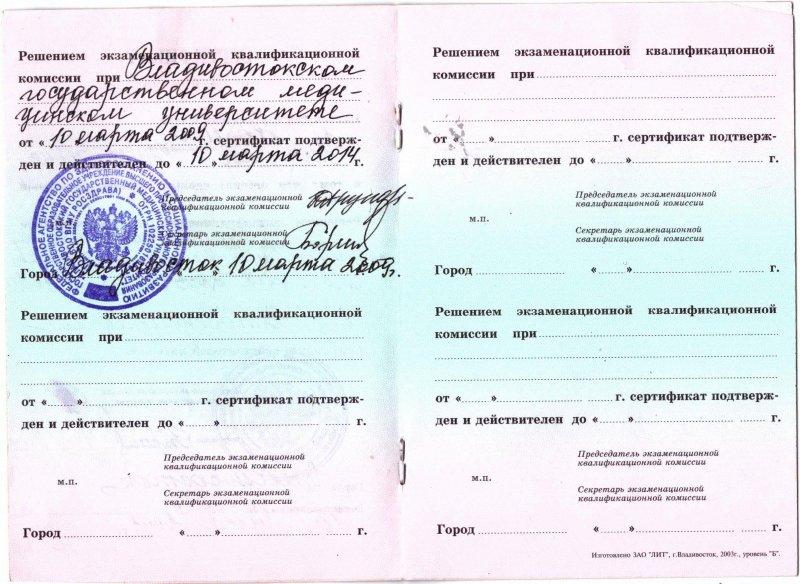 Решением экзаменационной квалификационной
комиссии при Владивостокском
государственном меди-
цинском университете
от « 10 марта 2009 г. сертификат подтверж-
ден и действителен до « 10 марта 2014 г.
Председатель экзаменационной
квалификационной комиссии
Секретарь экзаменационной
квалификационной комиссии
Город Владивосток 10 марта 2009г.
Решением экзаменационной квалификационной
комиссии при
от « » г. сертификат подтверж-
ден и действителен до « » г.
Председатель экзаменационной
квалификационной комиссии
м.п.
Секретарь экзаменационной
квалификационной комиссии
Город « » г.
Решением экзаменационной квалификационной
комиссии при
от « » г. сертификат подтверж-
ден и действителен до « » г.
Председатель экзаменационной
квалификационной комиссии
м.п.
Секретарь экзаменационной
квалификационной комиссии
Город « » г.
Решением экзаменационной квалификационной
комиссии при
от « » г. сертификат подтверж-
ден и действителен до « » г.
Председатель экзаменационной
квалификационной комиссии
м.п.
Секретарь экзаменационной
квалификационной комиссии
Город « » г.
Изготовлено ЗАО "ЛИТ", г.Владивосток, 2003г., уровень "Б".